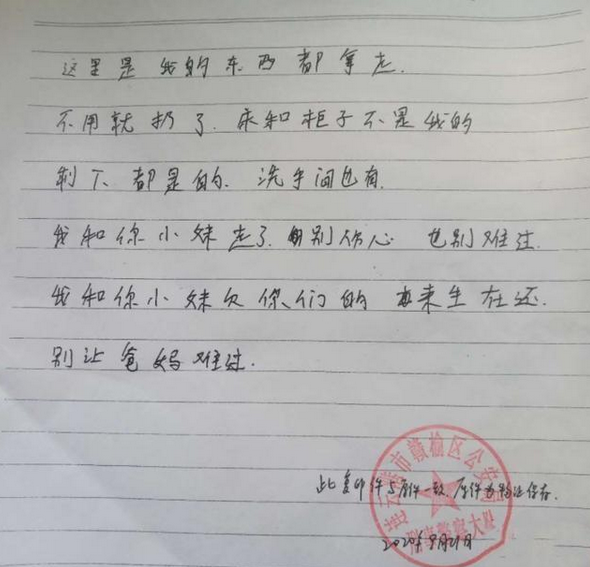 这里是我的东西都拿走.
不用就扔了.床和柜子不是我的
剩下都是的.洗手间也有.
我和你小妹走了.别伤心 也别难过.
我和你小妹欠你们的 来生在还.
别让爸妈难过.
此复印件与原件一致,原件为物证保存.
连云港市赣榆区公安局
刑事警察大队
2020年9月21日